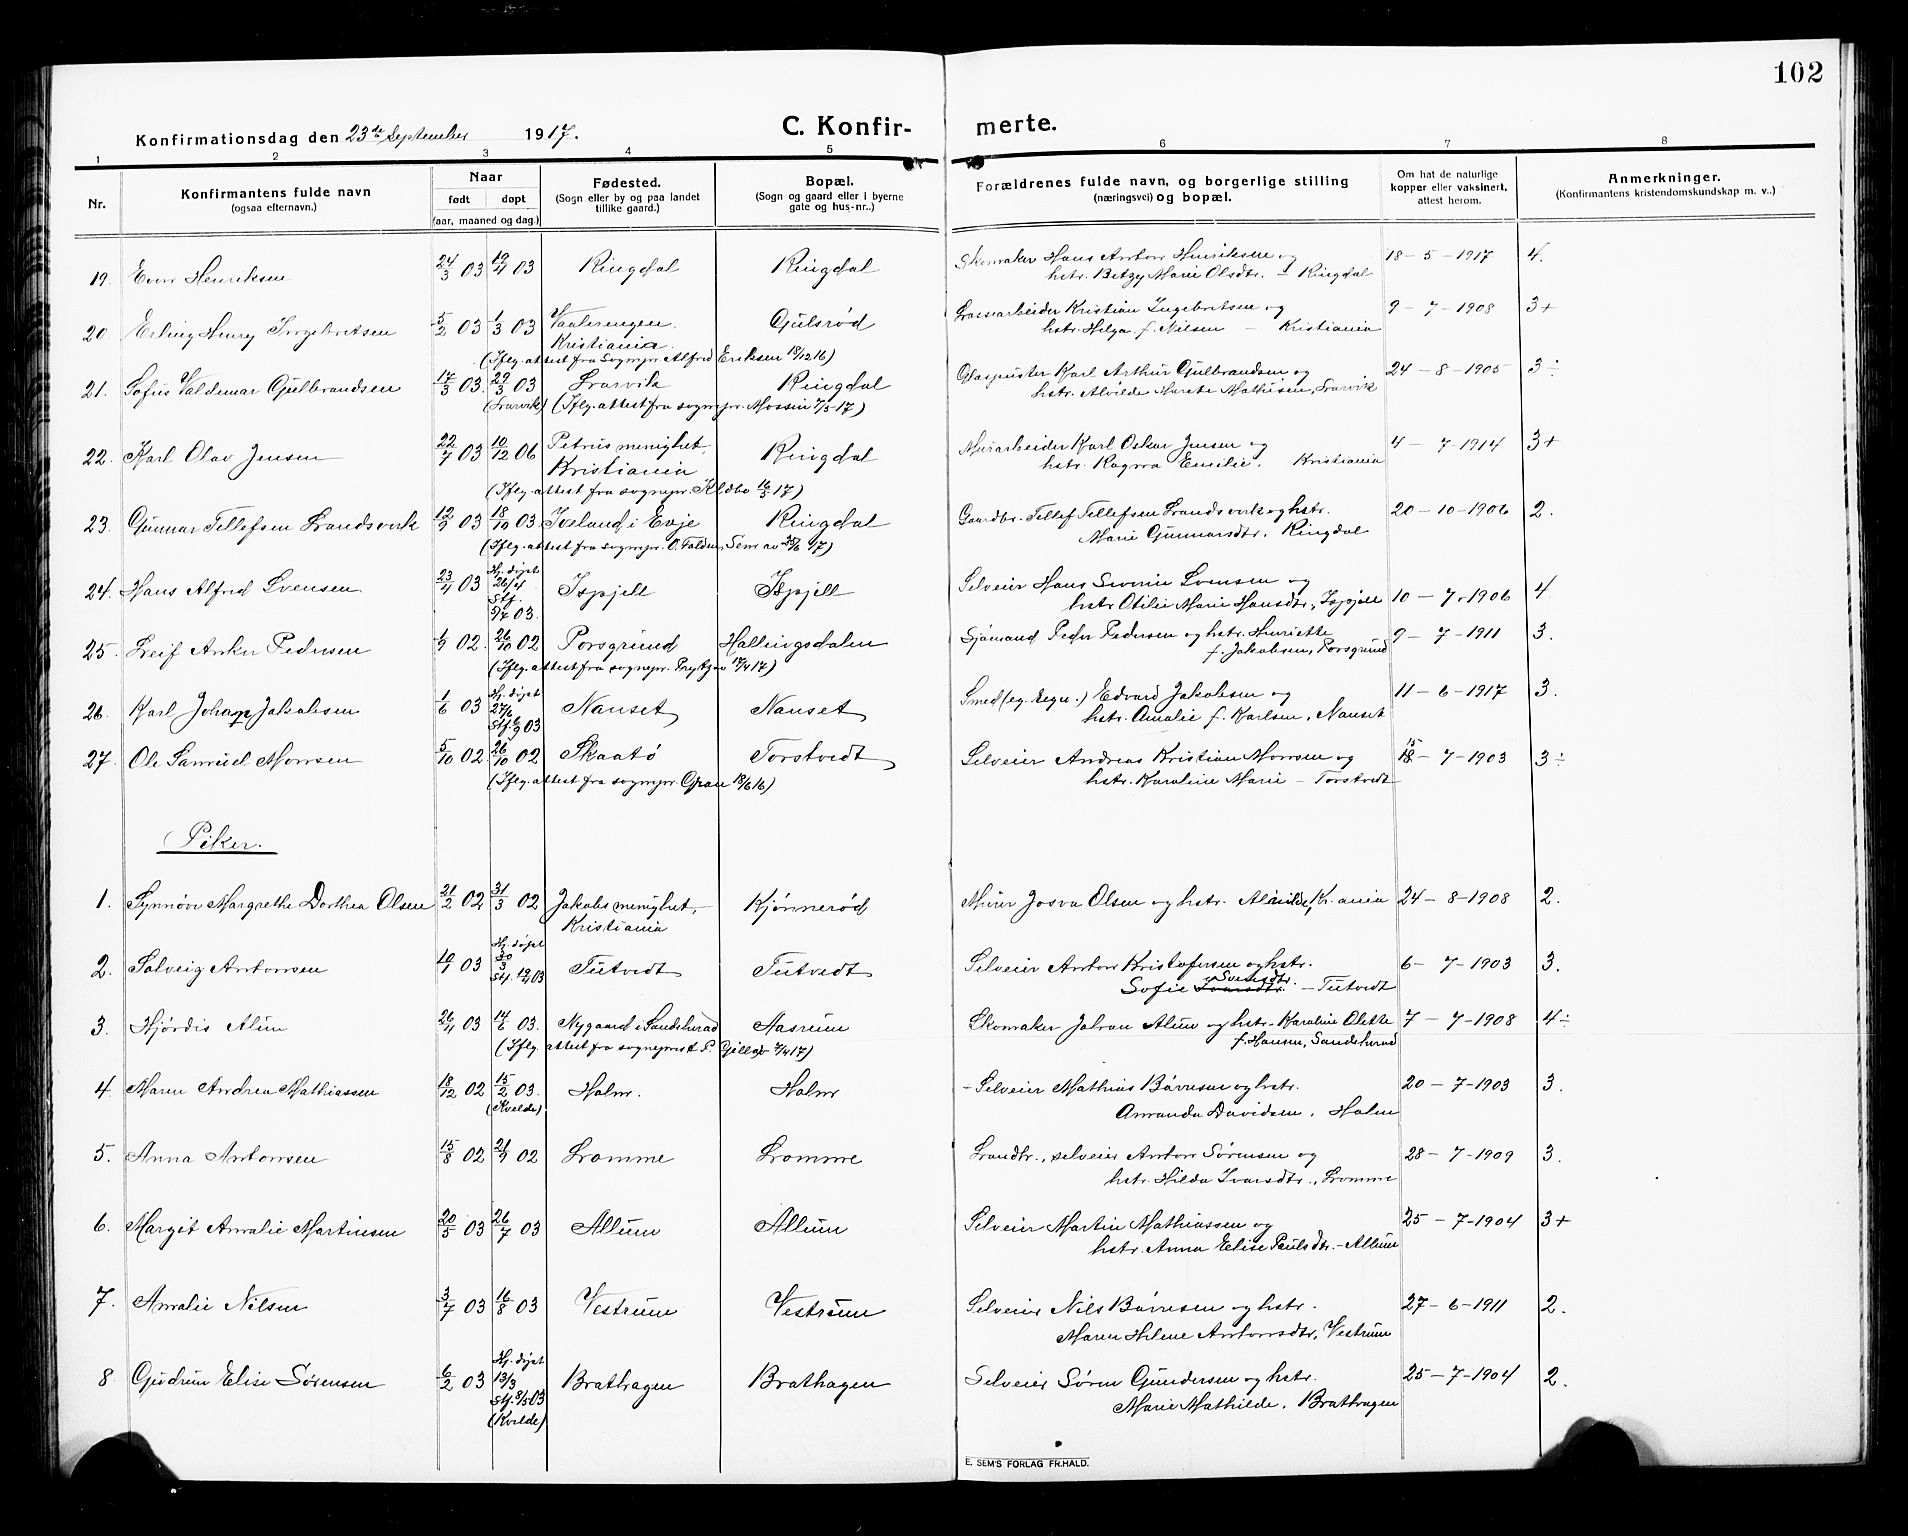 102
Konfirmationsdag den 23de September 1917.
C. Konfir- merte.
1 2 3 4 5 6 7 8
Nr.
Konfirmantens fulde navn
(ogsaa efternavn.)
Naar
født døpt
(aar, maaned og dag.)
Fødested.
(Sogn eller by og paa landet
tillike gaard.)
Bopæl.
(Sogn og gaard eller i byerne
gate og hus-nr..)
Forældrenes fulde navn, og borgerlige stilling
(næringsvei) og bopæl.
Om hat de naturlige
kopper eller vaksinert,
attest herom.
Anmerkninger.
(Konfirmantens kristendomskundskap m. v..)
19. Henriksen 24/3 03 19/4 03 Ringdal Ringdal Skomaker Hans Anton Henriksen og 18-5-1917 4.
hstr. Betzy Marie Olsdtr. - Ringdal
20. Erling Henry Ingebretsen 5/2 03 1/3 03 Vaalerengen. Gulsrød Kristian Ingebretsen og 9-7-1908 3+
Kristiania. hstr. Helga f. Nilsen - Kristiania
(Iflg. attest fra sognepr. Alfred Eriksen 18/12 16)
21. Sofus Valdemar Gulbrandsen 17/3 03 29/3 03 Larvik Ringdal Glaspuster Karl Arthur Gulbrandsen og 24-8-1905 3÷
(Larvik) (Iflg. attest fra sognepr. 7/5-17) hstr. Alvilde Marete Mathisen, Larvik
22. Karl Olav Jensen 22/7 03 10/12 06 Petrus menighet, Ringdal Murarbeider Karl Oskar Jensen og 4-7-1914 3+
Kristiania hstr. Ragna Emilie. Kristiania
(Iflg. attest fra sognepr. 16/3 17)
23. Gunnar Tellefsen Landsverk 12/9 03 18/10 03 Iveland i Evje Ringdal Gaardbr. Tellef Tellefsen Landsverk og hstr. 20-10-1906 2.
Marie Gunnarsdtr. Ringdal
(Iflg. attest fra sognepr. O. Sem av 17)
24. Hans Alfred Svensen 23/4 03 Hj. døpt Ispjell Ispjell Selveier Hans Severin Svensen og
26/4
Stf. hstr. Otilie Marie Hansdtr., Ispjell 10-7-1906 4
9/7 03.
25. Leif Anker Pedersen 1/9 02. 26/10 02 Porsgrund Hallingsdalen Sjømand Peder Pedersen og hstr. Henriette 9-7-1911 3.
f. Jakobsen, Porsgrund
(Iflg. attest fra sognepr. 17/4 17)
26. Karl Johan Jakobsen 1/6 03 Hj. døpt Nanset Nanset Smed (eg. regn.) Edvard Jakobsen og 11-6-1917 3.
27/6
Stf. 6/9 03 hstr. Amalie f. Karlsen, Nanset
27. Ole Samuel Monsen 5/10 02 26/10 02 Skaatø Torstvedt Selveier Andreas Kristian Monsen og 15-7-1903 3÷
(Iflg. attest fra sognepr. Gran 18/6 16) hstr. Karoline Marie - Torstvedt
Piker.
1. Synnøve Margrethe Dorthea Olsen 21/2 02 31/3 02 Jakobs menighet, Kjønnerød Murer Josva Olsen og hstr. Alvilde, Kr.ania 24-8-1908 2.
Kristiania
2. Solveig Antonsen 10/1 03 Hj. døpt Tutvedt Tutvedt Selveier Anton Kristofersen og hstr. 6-7-1903 3.
30/3
Stf. 19/4 03 Sofie Ivarsdtr. Svensdtr. - Tutvedt
3. Hjørdis Alum 26/4 03 14/6 03. Nygaard i Sandeherad Aasrum Skomaker Johan Alum og hstr. Karoline Olette 7-7-1908 4÷
f. Hansen, Sandeherad
(Iflg. attest fra sogneprest 7/4 17)
4. Maren Andrea Mathiassen 18/12 02 15/2 03. Holm. Holm - Selveier Mathias Børresen og hstr. 20-7-1903 3.
(Kvelde) Amanda Davidsen. Holm
5. Anna Antonsen 15/8 02 21/9 02 Lomme Lomme Landbr., selveier Anton Sørensen og 28-7-1909 3.
hstr. Hilda Ivarsdtr., Lomme
6. Margit Amalie Martinsen 20/5 03 26/7 03 Allum Allum Selveier Martin Mathiassen og 25-7-1904 3+
hstr. Anna Elise Paulsdtr. - Allum
7. Amalie Nilsen 3/7 03 16/8 03 Vestrum Vestrum Selveier Nils Børresen og hstr. 27-6-1911 2.
Maren Helene Antonsdtr, Vestrum
8. Gudrun Elise Sørensen 6/2 03 Hj. døpt Brathagen Brathagen Selveier Søren Gundersen og hstr. 25-7-1904 2.
13/3
Stf. 8/5 03 Marie Mathilde. Brathagen
(Kvelde)
E. SEM'S FORLAG FR.HALD.